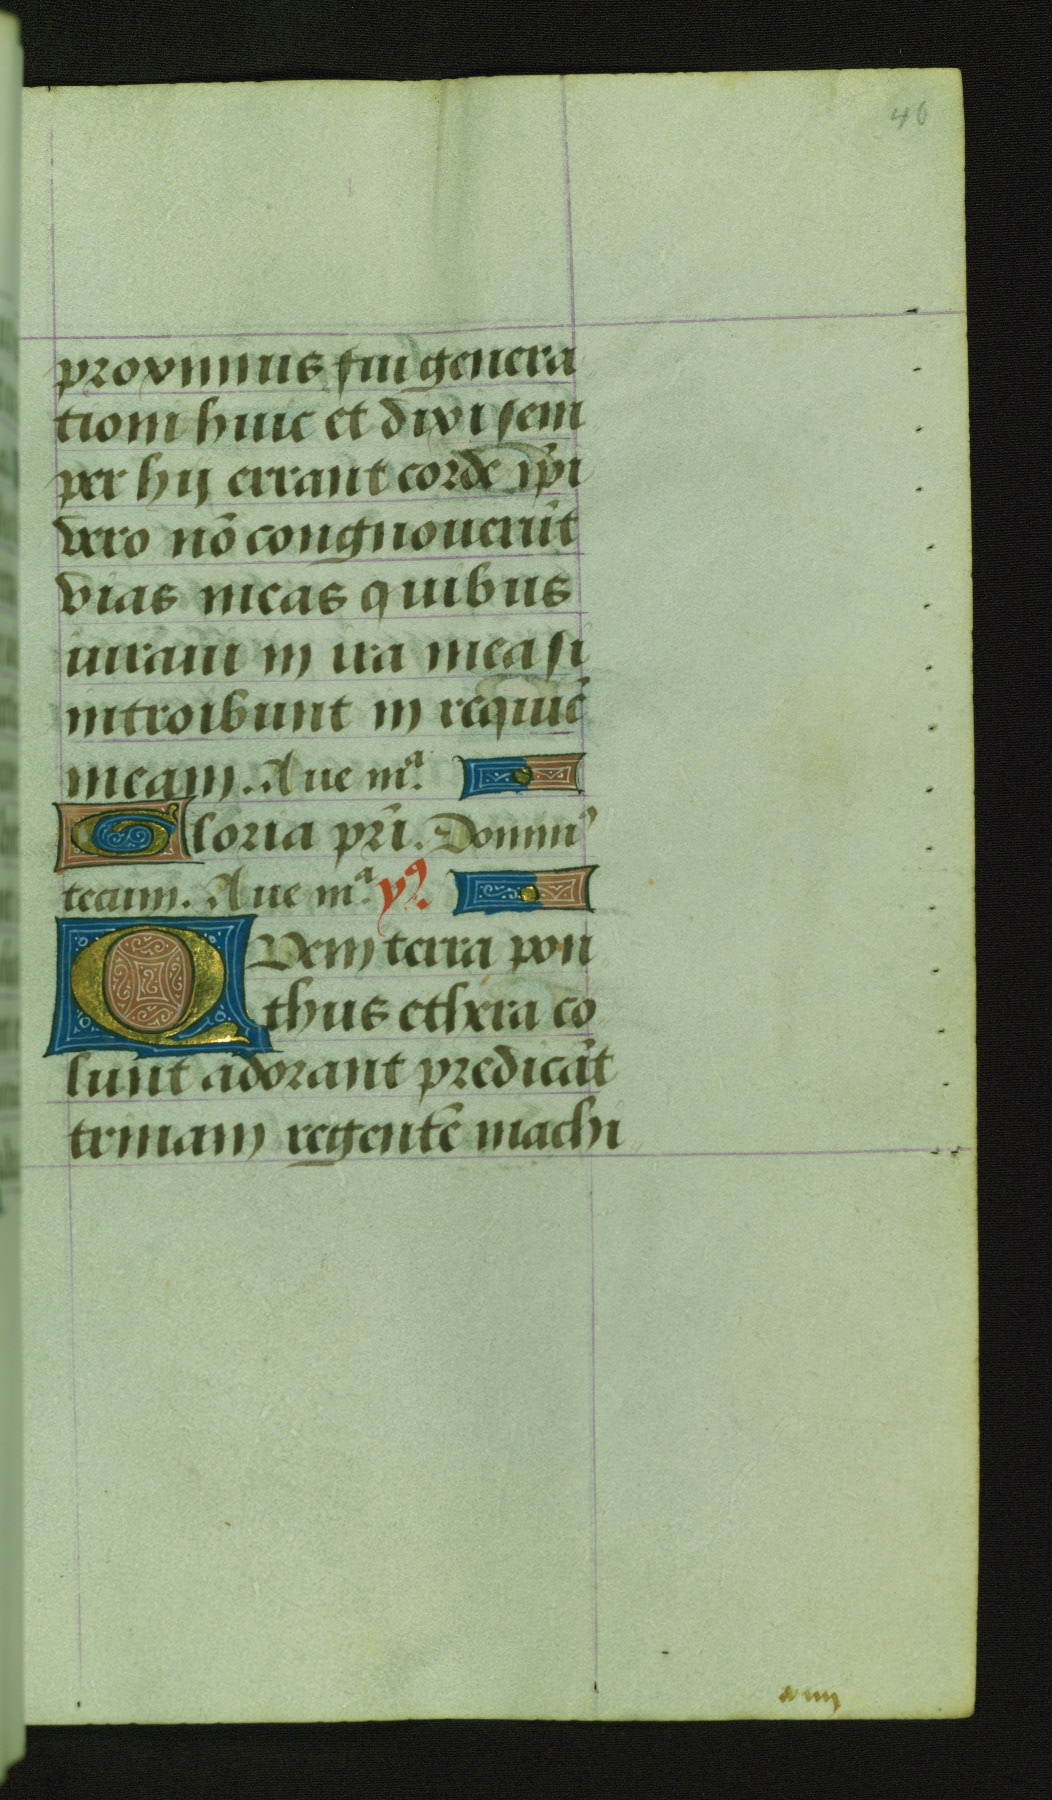 40
proximus fui genera
tioni huic et dixi sem
per hij errant corde ip̄i
vero nō congnouerūt
vias meas quibus
iuraui in ira mea si
introibunt in requiē
meam. Aue mᵃ.
Gloria pr̄i. Dominꝰ
tecum. Aue mᵃ. yꝰ.
QVem terra pon
thus ethera co
lunt adorant predicāt
trinam regentē machi